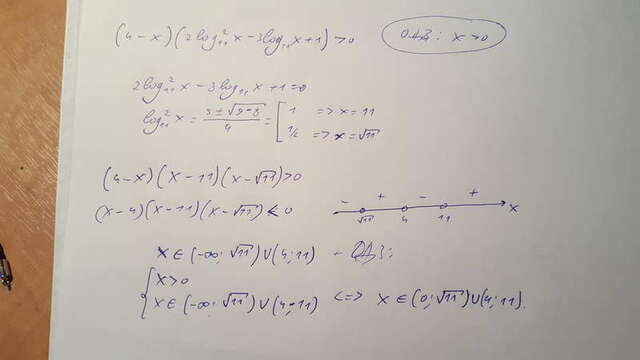 (4-x)(2log²₁₁x-3log₁₁x+1)>0
ОДЗ: x>0
2log²₁₁x-3log₁₁x+1=0
log₁₁x = (3±√(9-8))/4 = [1 => x=11
1/2 => x=√11
(4-x)(x-11)(x-√11)>0
(x-4)(x-11)(x-√11)<0
- + - +
√11 4 11 x
x∈(-∞;√11)∪(4;11)
{x>0
x∈(-∞;√11)∪(4;11) <=> x∈(0;√11)∪(4;11)